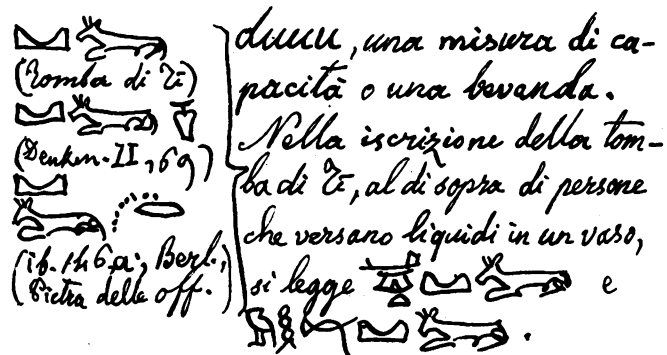 (Tomba di Ti)
(Denkm. II, 69)
(ib. 146 a; Berl.,
Pietra delle off.)
duuu, una misura di ca-
pacità o una bevanda.
Nella iscrizione della tom-
ba di Ti, al di sopra di persone
che versano liquidi in un vaso,
si legge e